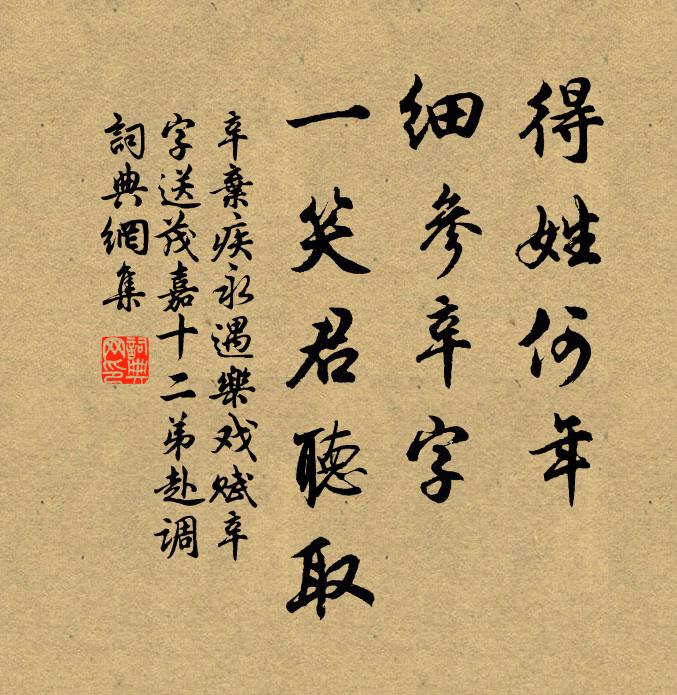 得姓何年
细参辛字
一笑君聽取
辛棄疾永遇樂戏赋辛
字送茂嘉十二弟赴调
詞典網集
詞典网印